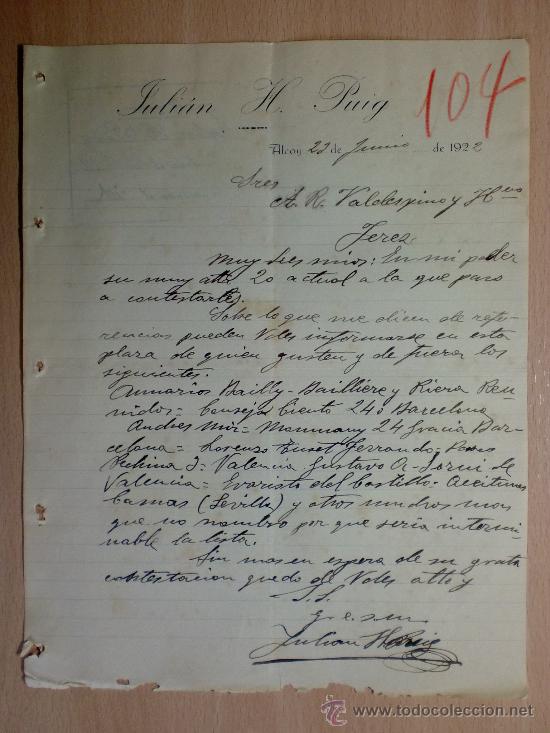 Julián H. Puig
104
Alcoy 22 de Junio de 1922
Sres
A. R. Valdespino y Hnos
Jerez
Muy Sres mios: En mi poder
su muy atta 20 actual a la que paso
a contestarles.
Sobe lo que me dicen de refe-
rencias pueden Vdes informarse en esta
plaza de quien gusten y de fuera los
siguientes.
Anuarios Bailly-Bailliere y Riera Reu-
nidos= Consejo Ciento 240 Barcelona
Andres Mir= 24 Gracia Bar-
celona= Lorenzo Ferrando=
Pechina 5= Valencia Gustavo A= de
Valencia= Evaristo del Castillo= Aceitunas
Camas (Sevilla) y otros muchos mas
que no nombro por que seria intermi-
nable la lista.
Sin mas en espera de su grata
contestacion quedo de Vdes atto y
S. S.
q. e. s. m.
Julian H Puig
todocoleccion
www.todocoleccion.net